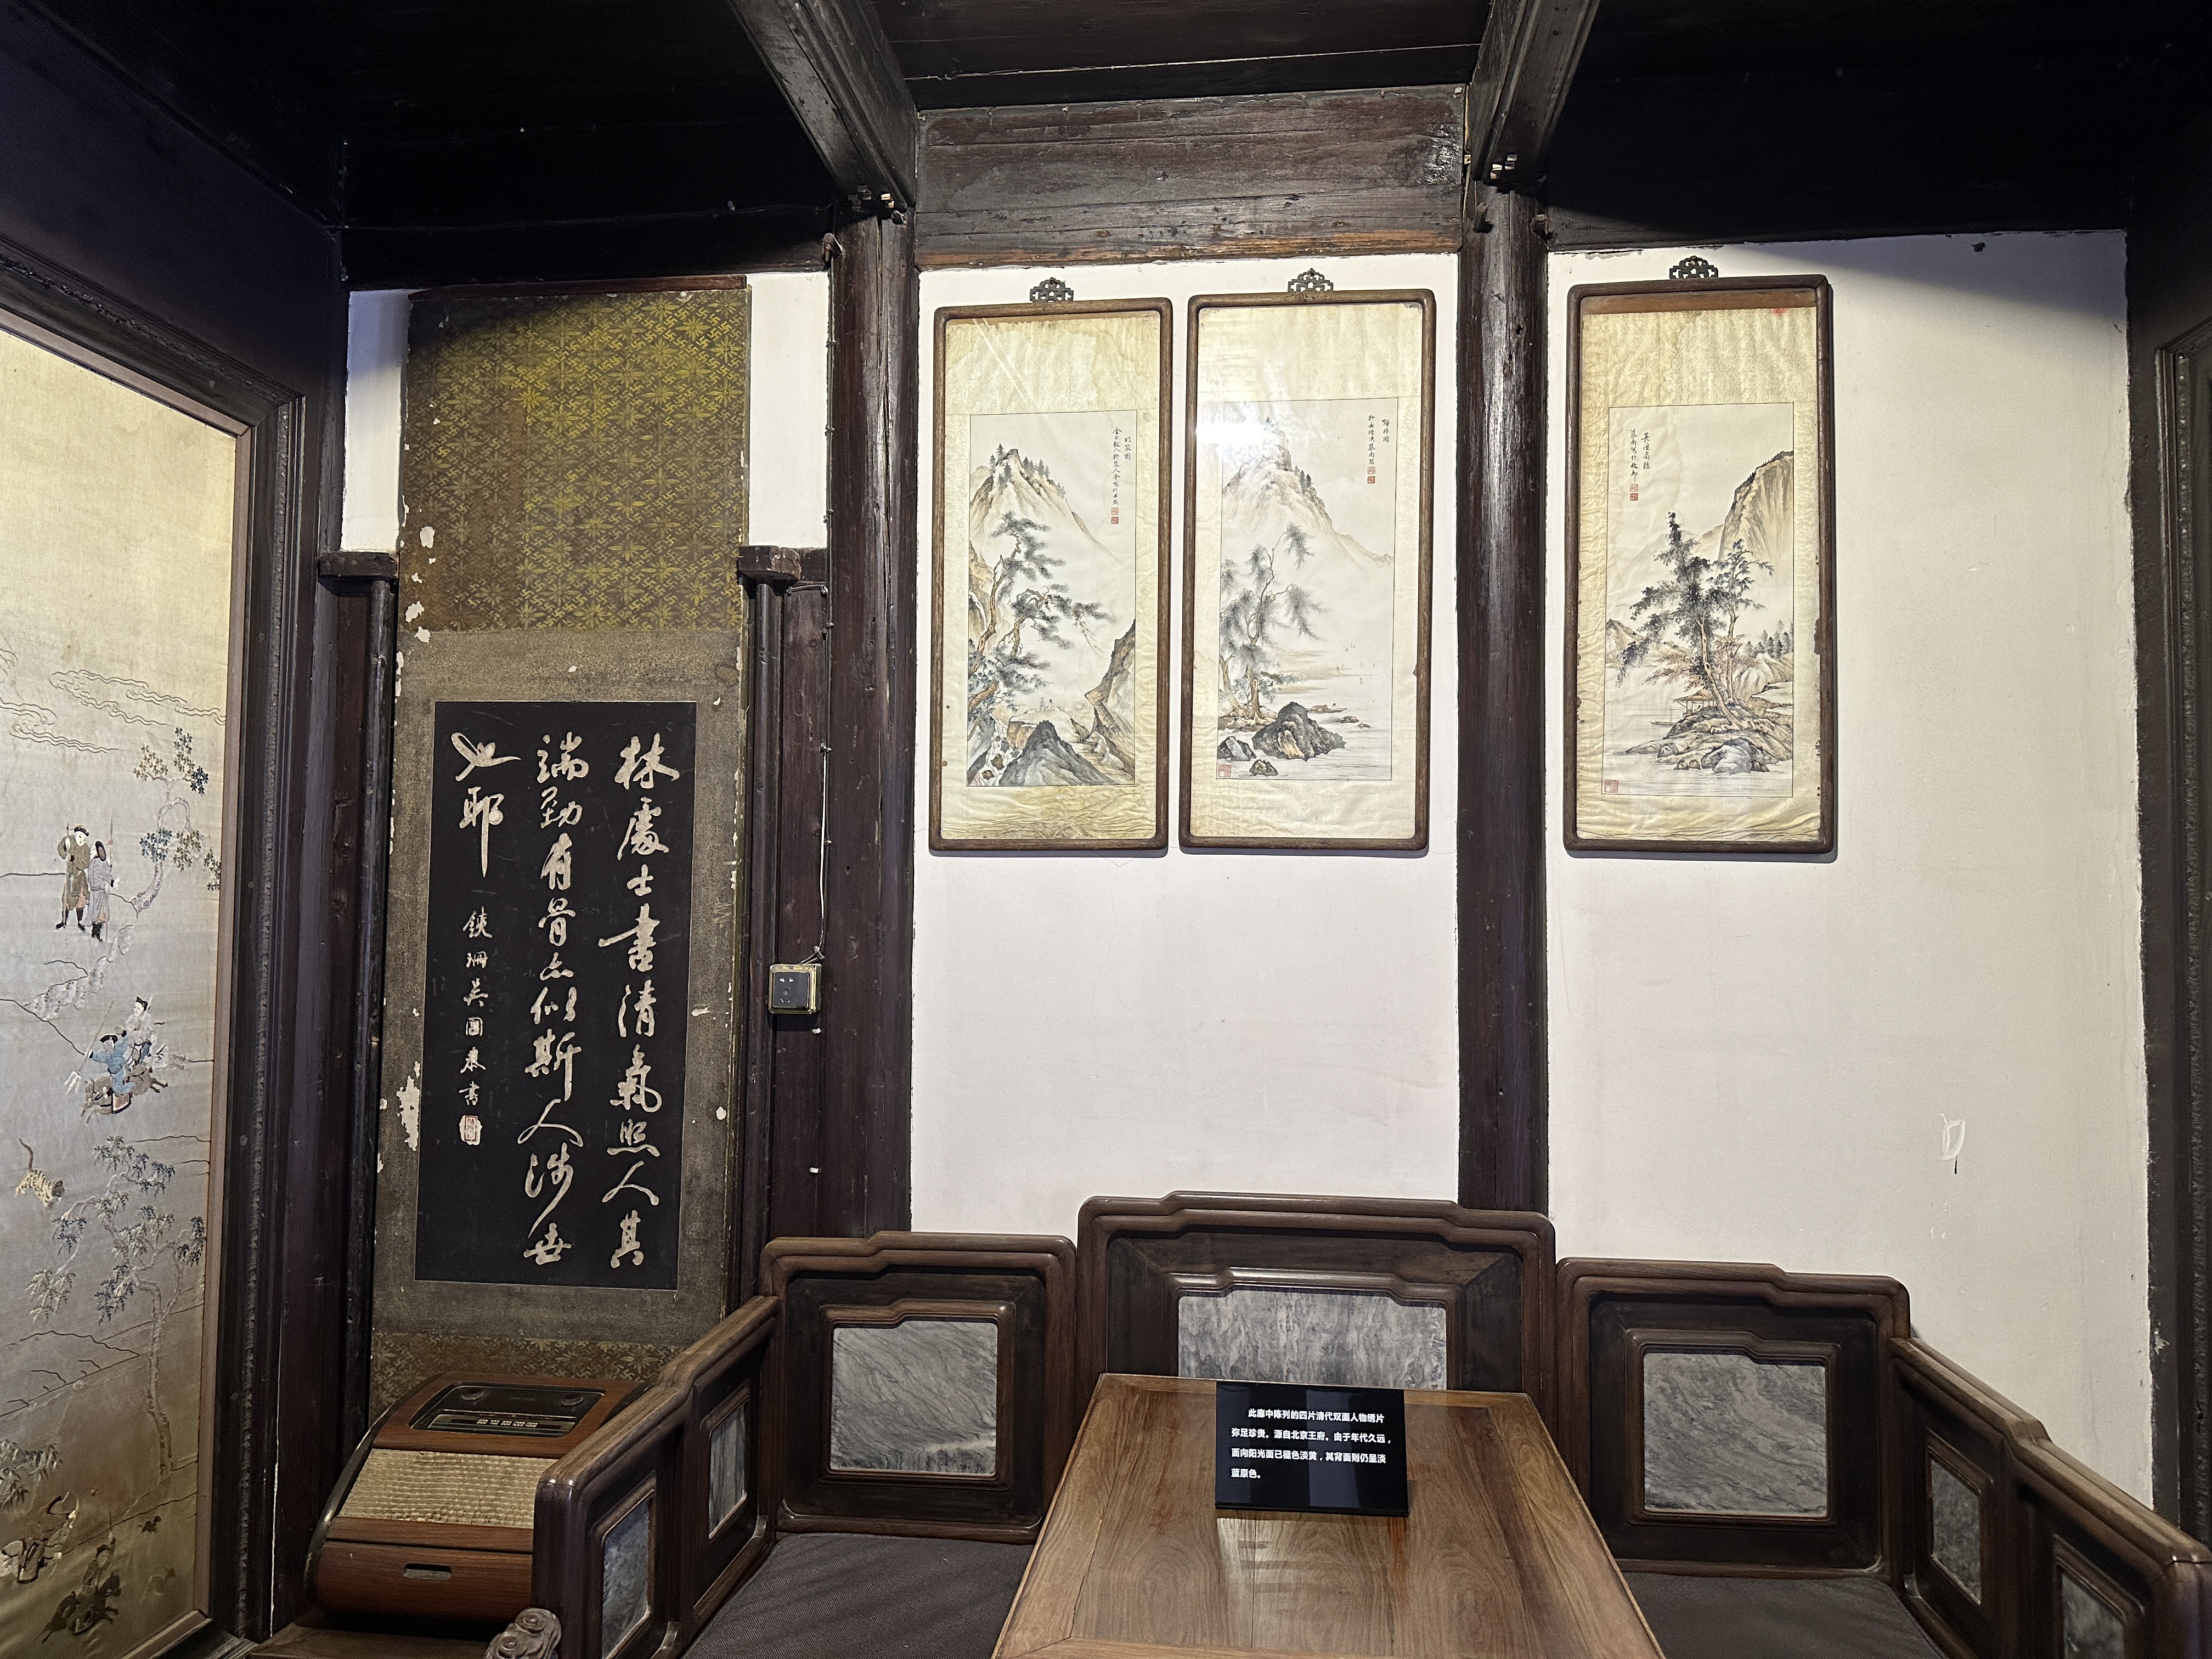 林處士書清氣照人其
端勁有骨亦似斯人涉世
也耶
鐵珊吳國泰書
此廊中陈列的四片清代双面人物绣片
弥足珍贵。源自北京王府。由于年代久远，
面向阳光面已褪色淡黄，其背面则仍呈淡
蓝原色。